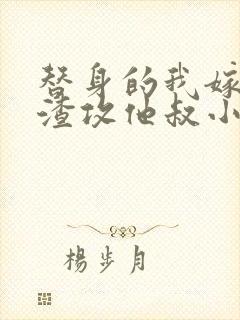 替身的我嫁
渣攻他叔小
楊步月